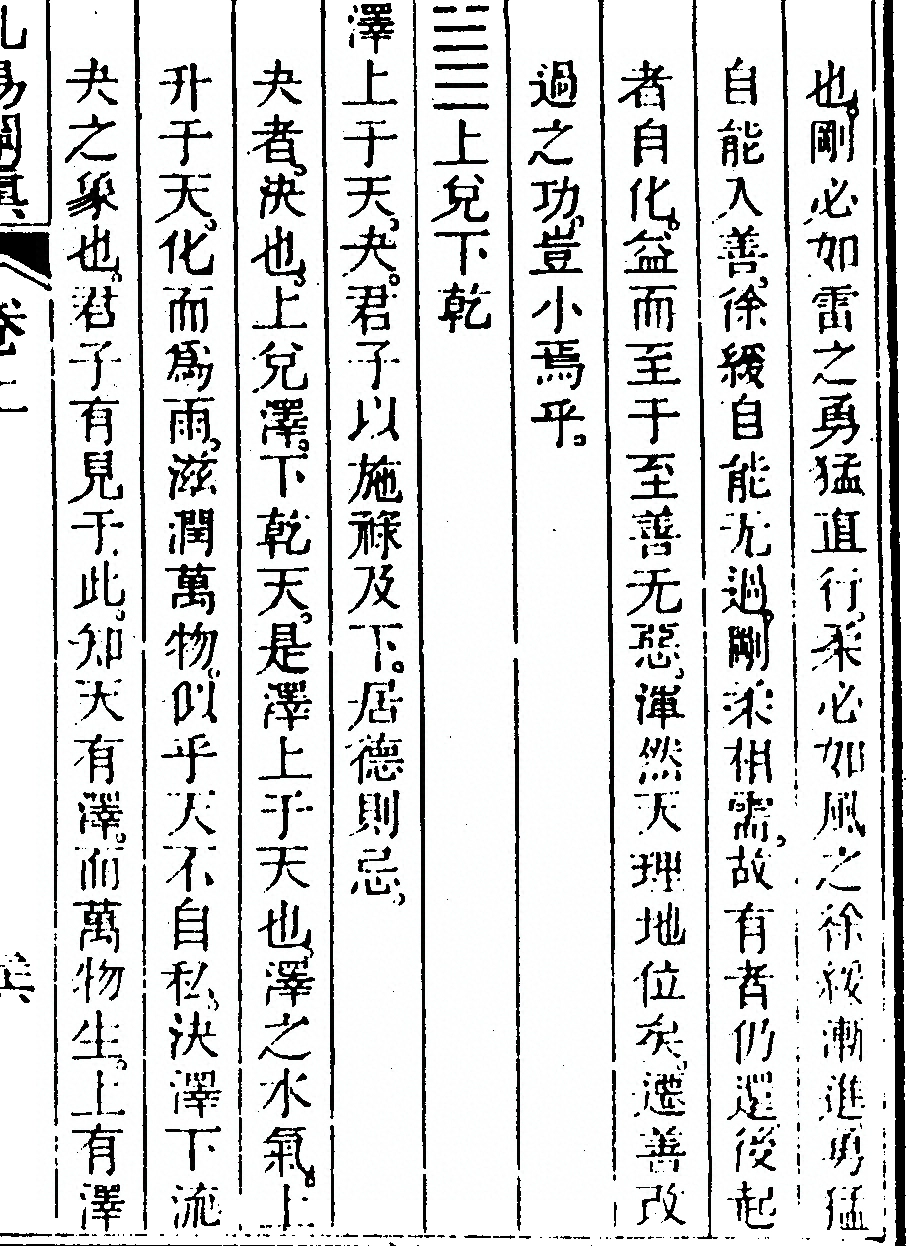 也。剛必如雷之勇猛直行。柔必如風之徐緩漸進。勇猛
自能入善。徐緩自能无過。剛柔相需。故有者仍還。後起
者自化。益而至于至善无惡。渾然天理地位矣。遷善改
過之功。豈小焉乎。
䷪上兌下乾
澤上于天。夬。君子以施祿及下。居德則忌。
夬者。決也。上兌澤。下乾天。是澤上于天也。澤之水氣。上
升于天。化而爲雨。滋潤萬物。似乎天不自私。決澤下流
夬之象也。君子有見于此。知天有澤。而萬物生。上有澤